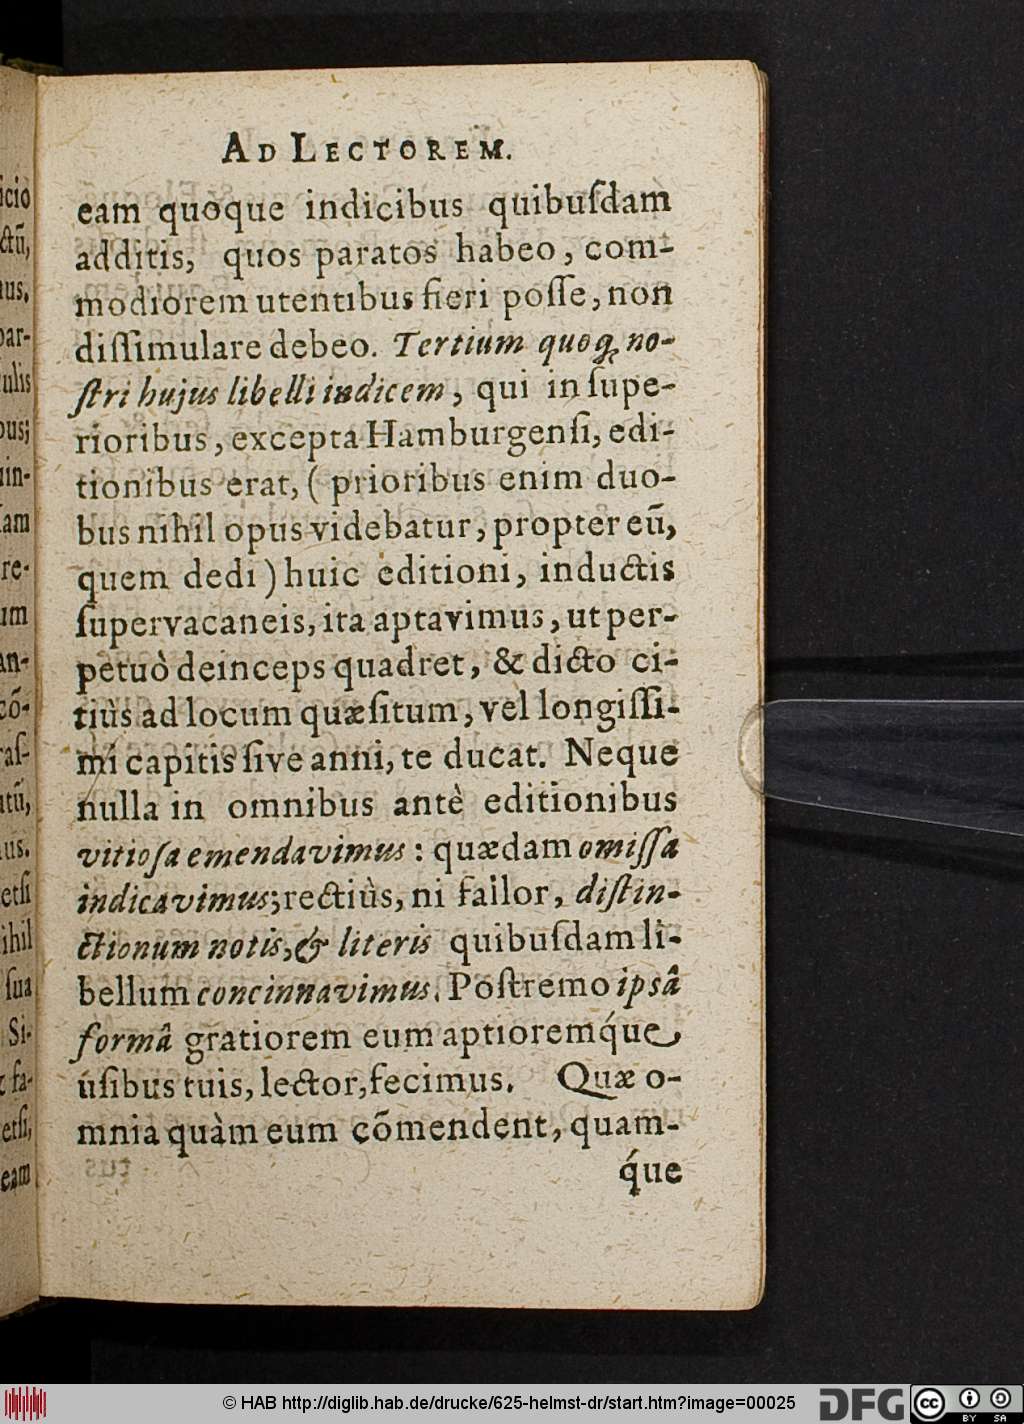 AD LECTOREM.
eam quoque indicibus quibuſdam
additis, quos paratos habeo, com-
modiorem utentibus fieri poſſe, non
diſſimulare debeo. Tertium quoq; no-
ſtri hujus libelli indicem, qui in ſupe-
rioribus, excepta Hamburgenſi, edi-
tionibus erat, (prioribus enim duo-
bus nihil opus videbatur, propter eũ,
quem dedi) huic editioni, inductis
ſupervacaneis, ita aptavimus, ut per-
petuò deinceps quadret, & dicto ci-
tiùs ad locum quæſitum, vel longiſſi-
mi capitis ſive anni, te ducat. Neque
nulla in omnibus antè editionibus
vitioſa emendavimus: quædam omiſſa
indicavimus; rectiùs, ni fallor, diſtin-
ctionum notis, & literis quibuſdam li-
bellum concinnavimus. Poſtremo ipsâ
formâ gratiorem eum aptioremq́ue
uſibus tuis, lector, fecimus. Quæ o-
mnia quàm eum cõmendent, quam-
q́ue
iciò
ctũ,
tus,
par-
ulis
ous;
uin-
ſam
re-
um
an-
cõ-
raſ-
utũ,
us.
etſi
ihil
ſua
Si-
fa-
etſi,
eam
© HAB http://diglib.hab.de/drucke/625-helmst-dr/start.htm?image=00025
DFG
cc
BY SA